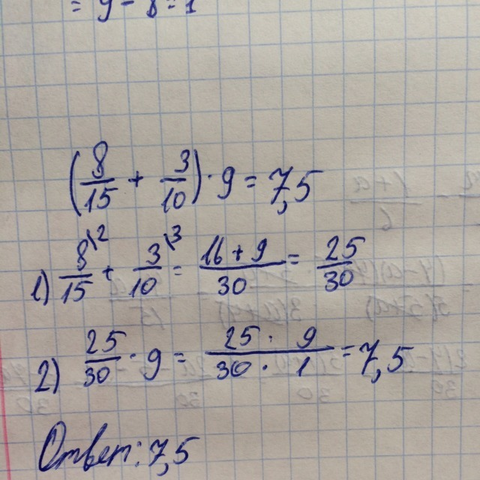 = 9 - 8 = 1
(8/15 + 3/10) · 9 = 7,5
1) 8\2/15 + 3\3/10 = 16 + 9/30 = 25/30
2) 25/30 · 9 = 25 · 9/30 · 1 = 7,5
Ответ: 7,5